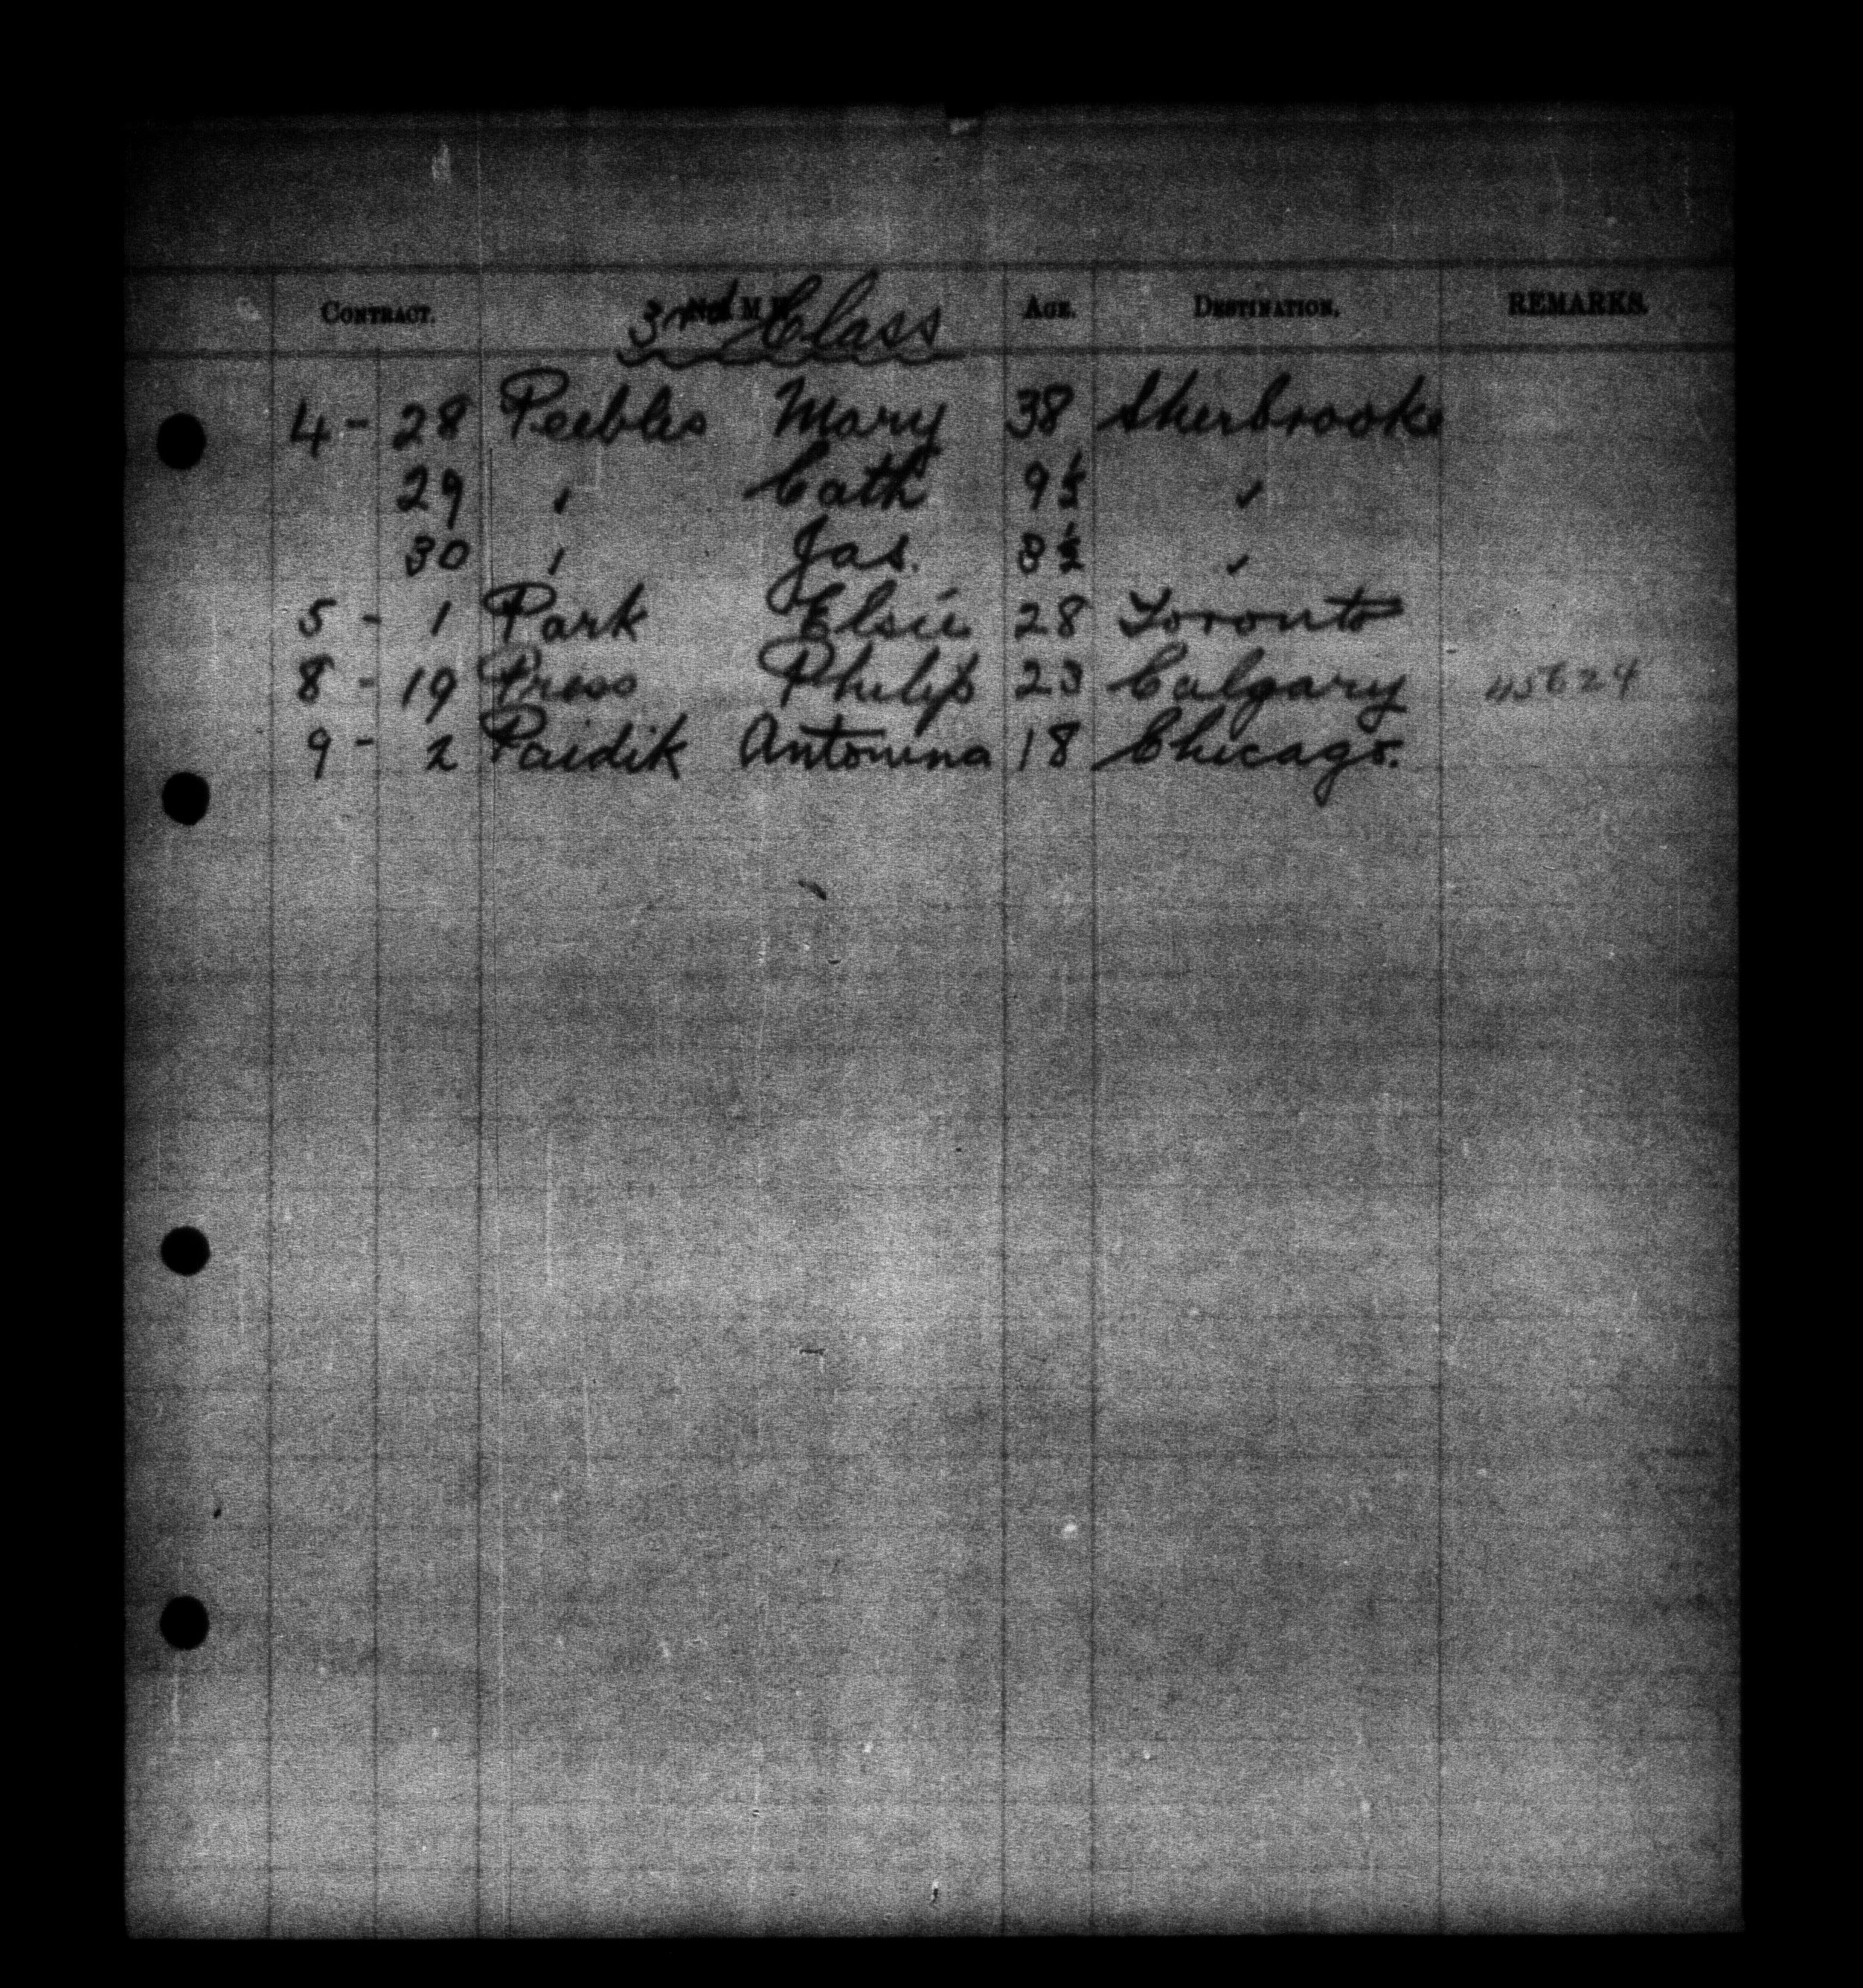 CONTRACT. NAME AGE. DESTINATION. REMARKS.
3rd Class
4 - 28 Peebles Mary 38 Sherbrooke
29 " Cath 9½ "
30 " Jas. 8½ "
5 - 1 Park Elsie 28 Toronto
8 - 19 Press Philip 23 Calgary
9 - 2 Paidik Antonina 18 Chicago.